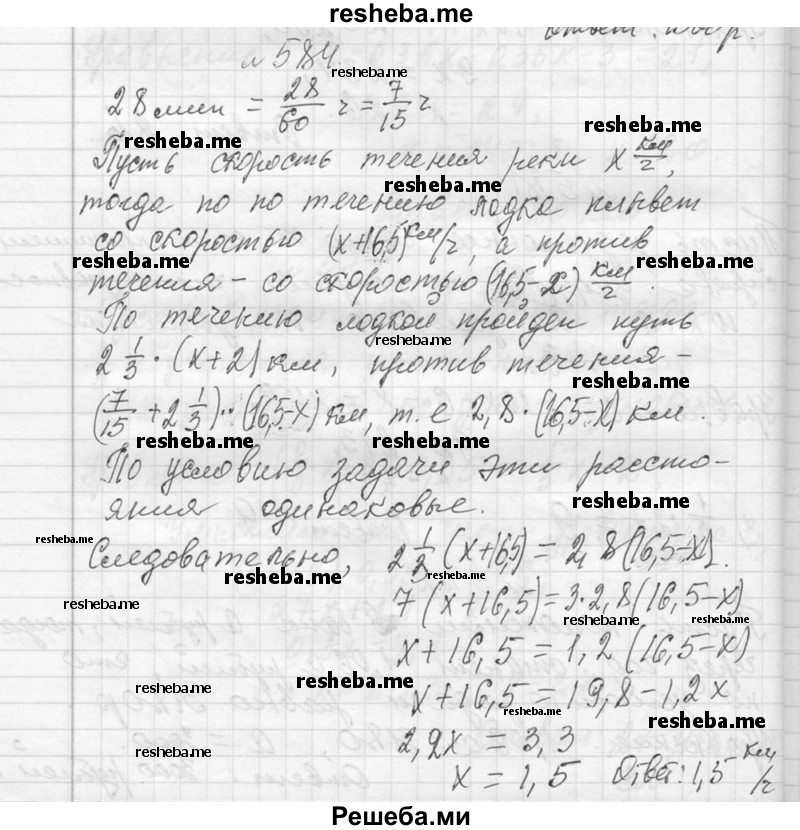 resheba.me
Ответ:
№ 584.
resheba.me
28 мин = 28/60 ч = 7/15 ч
resheba.me resheba.me
Пусть скорость течения реки x км/ч,
resheba.me
тогда по по течению лодка плывет
со скоростью (x+16,5) км/ч, а против
resheba.me resheba.me
течения - со скоростью (16,5-x) км/ч.
По течению лодкой пройден путь
resheba.me
2 1/3 · (x+2) км, против течения -
resheba.me
(7/15 + 2 1/3) · (16,5-x) км, т.е 2,8 · (16,5-x) км.
resheba.me resheba.me
По условию задачи эти рассто-
яния одинаковые.
resheba.me
resheba.me
Следовательно, 2 1/3 (x+16,5) = 2,8(16,5-x).
resheba.me resheba.me
resheba.me
7(x+16,5)=3·2,8(16,5-x)
resheba.me resheba.me
x+16,5 = 1,2(16,5-x)
resheba.me resheba.me
x+16,5=19,8-1,2x
resheba.me resheba.me
2,2x = 3,3
resheba.me
x = 1,5 Ответ: 1,5 км/ч
Решеба.ми